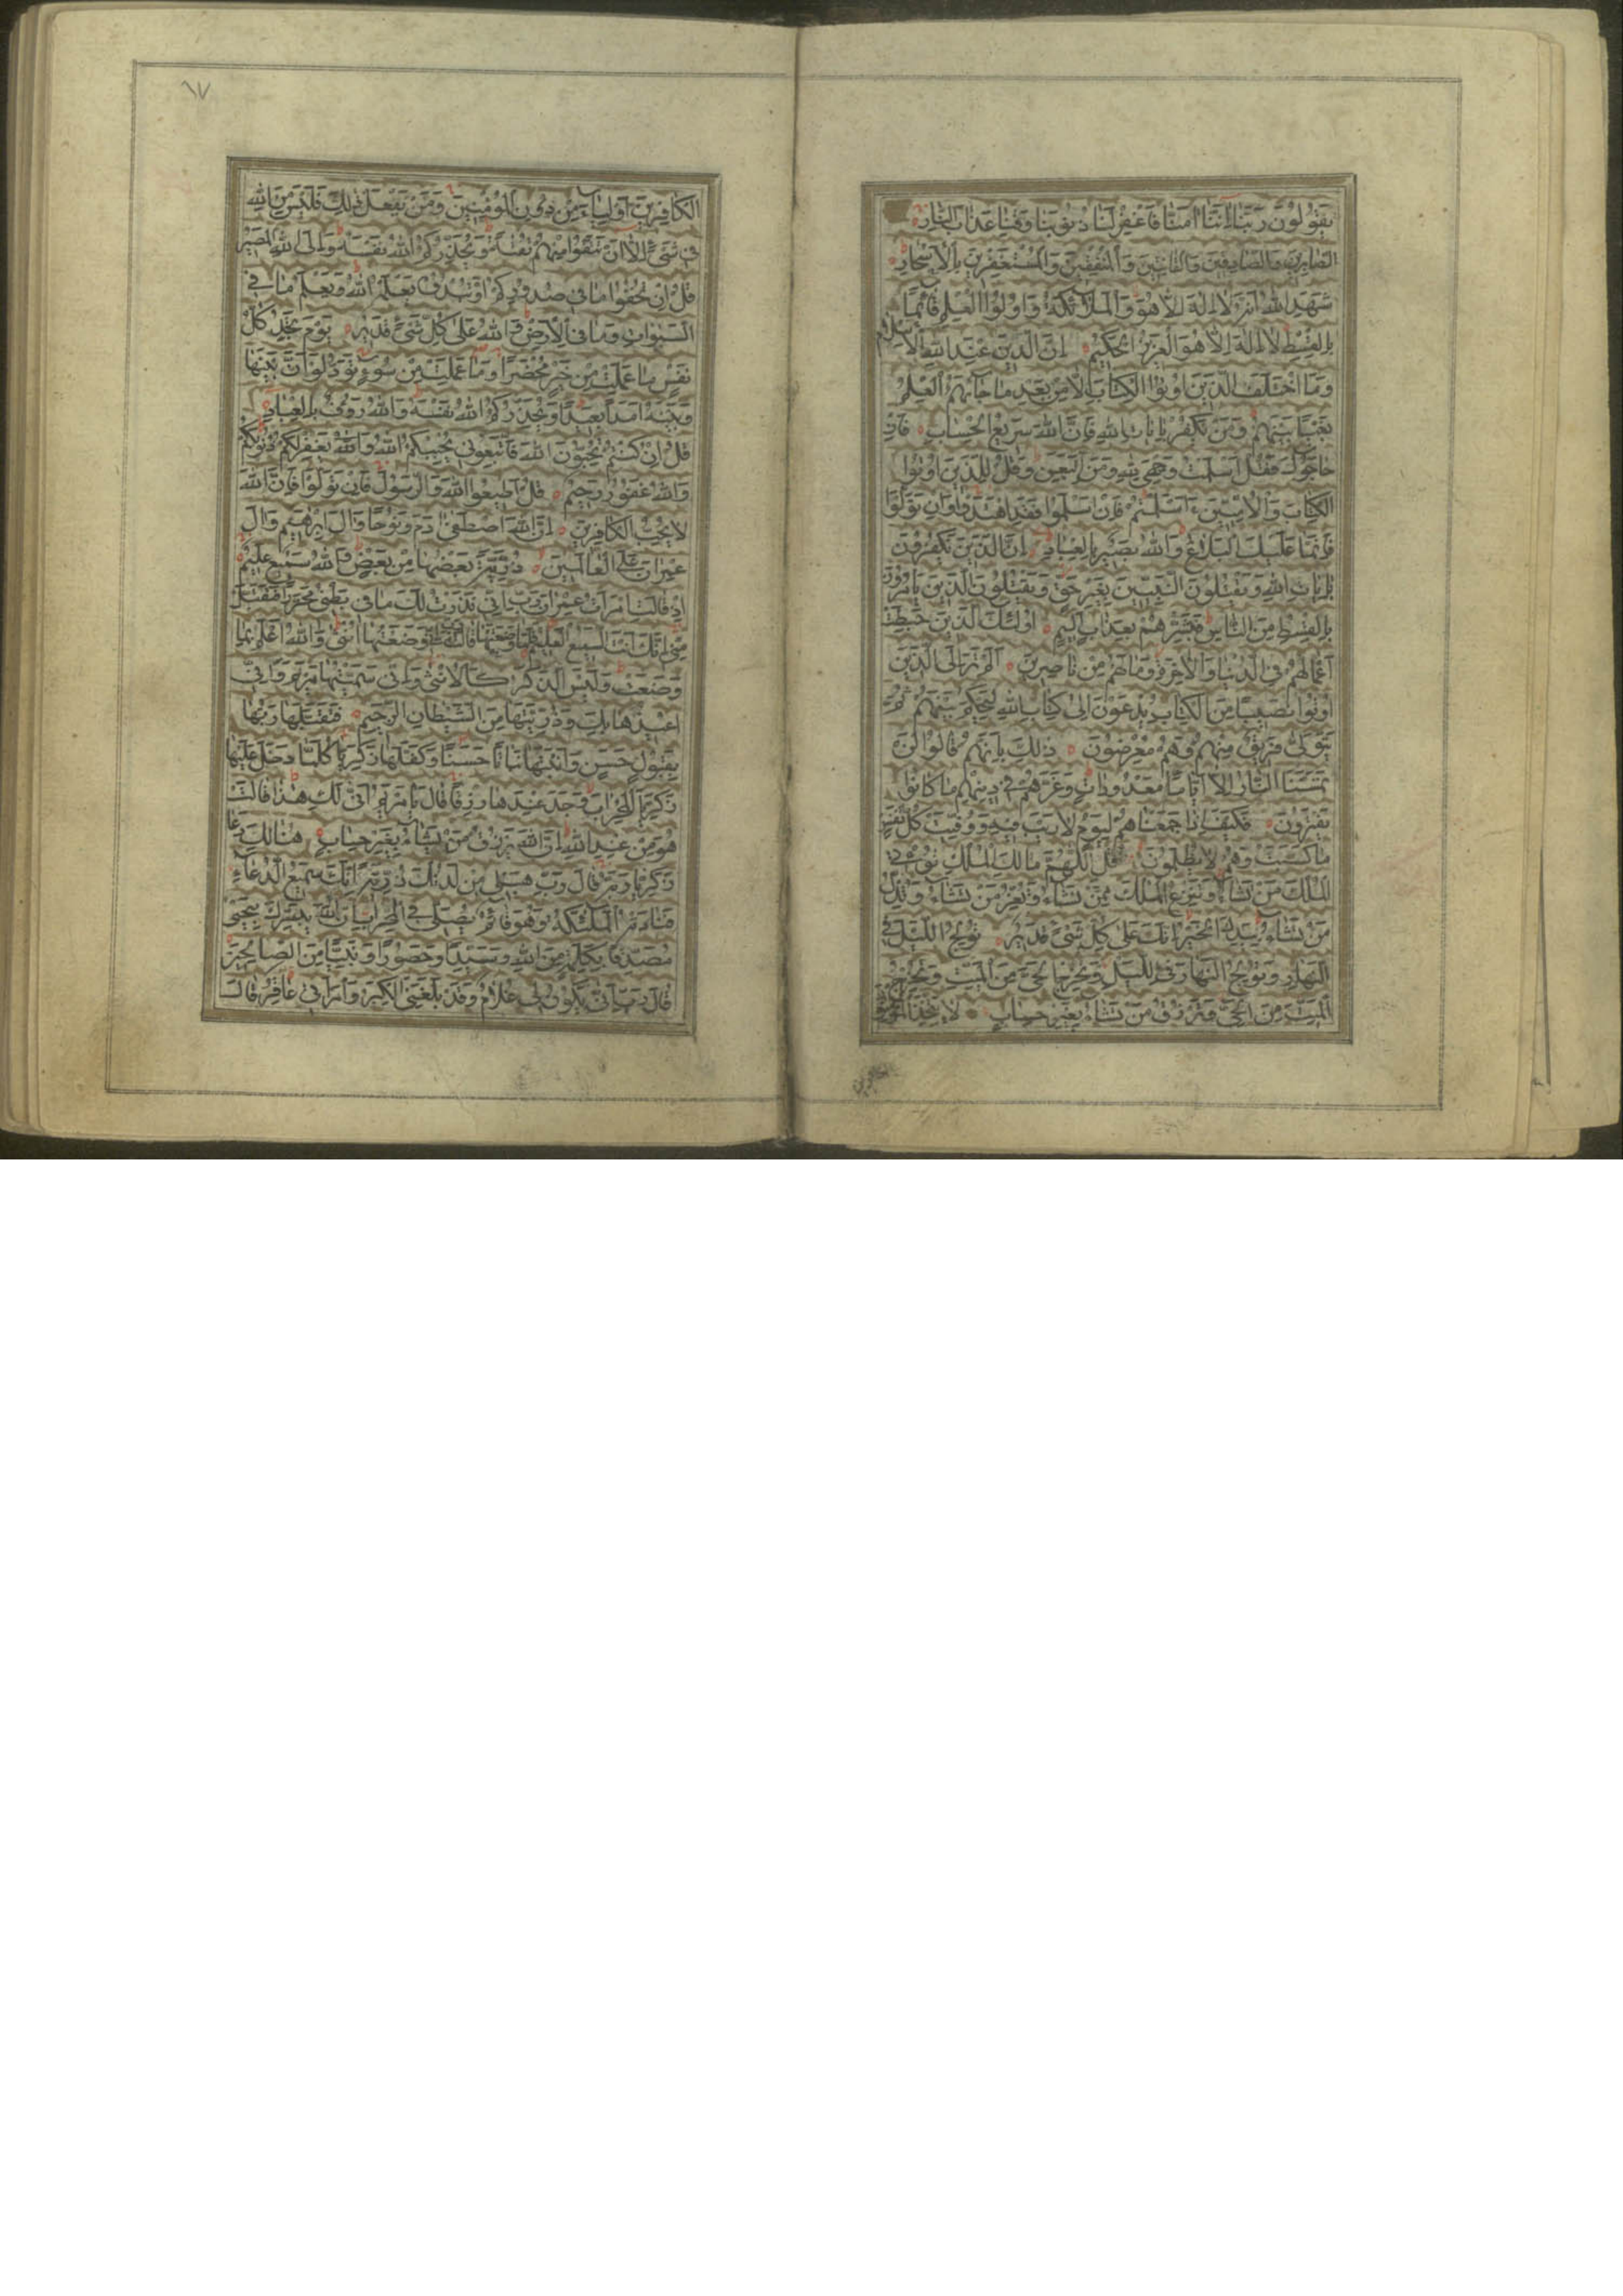 يَقُولُونَ رَبَّنَا إِنَّنَا آمَنَّا فَاغْفِرْ لَنَا ذُنُوبَنَا وَقِنَا عَذَابَ النَّارِ
الصَّابِرِينَ وَالصَّادِقِينَ وَالْقَانِتِينَ وَالْمُنْفِقِينَ وَالْمُسْتَغْفِرِينَ بِالْأَسْحَارِ
شَهِدَ اللهُ أَنَّهُ لَا إِلَهَ إِلَّا هُوَ وَالْمَلَائِكَةُ وَأُولُوا الْعِلْمِ قَائِمًا
بِالْقِسْطِ لَا إِلَهَ إِلَّا هُوَ الْعَزِيزُ الْحَكِيمُ إِنَّ الدِّينَ عِنْدَ اللهِ الْإِسْلَامُ
وَمَا اخْتَلَفَ الَّذِينَ أُوتُوا الْكِتَابَ إِلَّا مِنْ بَعْدِ مَا جَاءَهُمُ الْعِلْمُ
بَغْيًا بَيْنَهُمْ وَمَنْ يَكْفُرْ بِآيَاتِ اللهِ فَإِنَّ اللهَ سَرِيعُ الْحِسَابِ فَإِنْ
حَاجُّوكَ فَقُلْ أَسْلَمْتُ وَجْهِيَ لِلَّهِ وَمَنِ اتَّبَعَنِ وَقُلْ لِلَّذِينَ أُوتُوا
الْكِتَابَ وَالْأُمِّيِّينَ ءَأَسْلَمْتُمْ فَإِنْ أَسْلَمُوا فَقَدِ اهْتَدَوْا وَإِنْ تَوَلَّوْا
فَإِنَّمَا عَلَيْكَ الْبَلَاغُ وَاللهُ بَصِيرٌ بِالْعِبَادِ إِنَّ الَّذِينَ يَكْفُرُونَ
بِآيَاتِ اللهِ وَيَقْتُلُونَ النَّبِيِّينَ بِغَيْرِ حَقٍّ وَيَقْتُلُونَ الَّذِينَ يَأْمُرُونَ
بِالْقِسْطِ مِنَ النَّاسِ فَبَشِّرْهُمْ بِعَذَابٍ أَلِيمٍ أُولَئِكَ الَّذِينَ حَبِطَتْ
أَعْمَالُهُمْ فِي الدُّنْيَا وَالْآخِرَةِ وَمَا لَهُمْ مِنْ نَاصِرِينَ أَلَمْ تَرَ إِلَى الَّذِينَ
أُوتُوا نَصِيبًا مِنَ الْكِتَابِ يُدْعَوْنَ إِلَى كِتَابِ اللهِ لِيَحْكُمَ بَيْنَهُمْ ثُمَّ
يَتَوَلَّى فَرِيقٌ مِنْهُمْ وَهُمْ مُعْرِضُونَ ذَلِكَ بِأَنَّهُمْ قَالُوا لَنْ
تَمَسَّنَا النَّارُ إِلَّا أَيَّامًا مَعْدُودَاتٍ وَغَرَّهُمْ فِي دِينِهِمْ مَا كَانُوا
يَفْتَرُونَ فَكَيْفَ إِذَا جَمَعْنَاهُمْ لِيَوْمٍ لَا رَيْبَ فِيهِ وَوُفِّيَتْ كُلُّ نَفْسٍ
مَا كَسَبَتْ وَهُمْ لَا يُظْلَمُونَ قُلِ اللَّهُمَّ مَالِكَ الْمُلْكِ تُؤْتِي
الْمُلْكَ مَنْ تَشَاءُ وَتَنْزِعُ الْمُلْكَ مِمَّنْ تَشَاءُ وَتُعِزُّ مَنْ تَشَاءُ وَتُذِلُّ
مَنْ تَشَاءُ بِيَدِكَ الْخَيْرُ إِنَّكَ عَلَى كُلِّ شَيْءٍ قَدِيرٌ تُولِجُ اللَّيْلَ فِي
النَّهَارِ وَتُولِجُ النَّهَارَ فِي اللَّيْلِ وَتُخْرِجُ الْحَيَّ مِنَ الْمَيِّتِ وَتُخْرِجُ
الْمَيِّتَ مِنَ الْحَيِّ وَتَرْزُقُ مَنْ تَشَاءُ بِغَيْرِ حِسَابٍ لَا يَتَّخِذِ الْمُؤْمِنُونَ
الكافرين
٦٧
الْكَافِرِينَ أَوْلِيَاءَ مِنْ دُونِ الْمُؤْمِنِينَ وَمَنْ يَفْعَلْ ذَلِكَ فَلَيْسَ مِنَ اللهِ
فِي شَيْءٍ إِلَّا أَنْ تَتَّقُوا مِنْهُمْ تُقَاةً وَيُحَذِّرُكُمُ اللهُ نَفْسَهُ وَإِلَى اللهِ الْمَصِيرُ
قُلْ إِنْ تُخْفُوا مَا فِي صُدُورِكُمْ أَوْ تُبْدُوهُ يَعْلَمْهُ اللهُ وَيَعْلَمُ مَا فِي
السَّمَوَاتِ وَمَا فِي الْأَرْضِ وَاللهُ عَلَى كُلِّ شَيْءٍ قَدِيرٌ يَوْمَ تَجِدُ كُلُّ
نَفْسٍ مَا عَمِلَتْ مِنْ خَيْرٍ مُحْضَرًا وَمَا عَمِلَتْ مِنْ سُوءٍ تَوَدُّ لَوْ أَنَّ بَيْنَهَا
وَبَيْنَهُ أَمَدًا بَعِيدًا وَيُحَذِّرُكُمُ اللهُ نَفْسَهُ وَاللهُ رَءُوفٌ بِالْعِبَادِ
قُلْ إِنْ كُنْتُمْ تُحِبُّونَ اللهَ فَاتَّبِعُونِي يُحْبِبْكُمُ اللهُ وَاللهُ يَغْفِرْ لَكُمْ ذُنُوبَكُمْ
وَاللهُ غَفُورٌ رَحِيمٌ قُلْ أَطِيعُوا اللهَ وَالرَّسُولَ فَإِنْ تَوَلَّوْا فَإِنَّ اللهَ
لَا يُحِبُّ الْكَافِرِينَ إِنَّ اللهَ اصْطَفَى آدَمَ وَنُوحًا وَآلَ إِبْرَهِيمَ وَآلَ
عِمْرَانَ عَلَى الْعَالَمِينَ ذُرِّيَّةً بَعْضُهَا مِنْ بَعْضٍ وَاللهُ سَمِيعٌ عَلِيمٌ
إِذْ قَالَتِ امْرَأَتُ عِمْرَانَ رَبِّ إِنِّي نَذَرْتُ لَكَ مَا فِي بَطْنِي مُحَرَّرًا فَتَقَبَّلْ
مِنِّي إِنَّكَ أَنْتَ السَّمِيعُ الْعَلِيمُ فَلَمَّا وَضَعَتْهَا قَالَتْ رَبِّ إِنِّي وَضَعْتُهَا أُنْثَى وَاللهُ أَعْلَمُ بِمَا
وَضَعَتْ وَلَيْسَ الذَّكَرُ كَالْأُنْثَى وَإِنِّي سَمَّيْتُهَا مَرْيَمَ وَإِنِّي
أُعِيذُهَا بِكَ وَذُرِّيَّتَهَا مِنَ الشَّيْطَانِ الرَّجِيمِ فَتَقَبَّلَهَا رَبُّهَا
بِقَبُولٍ حَسَنٍ وَأَنْبَتَهَا نَبَاتًا حَسَنًا وَكَفَّلَهَا زَكَرِيَّا كُلَّمَا دَخَلَ عَلَيْهَا
زَكَرِيَّا الْمِحْرَابَ وَجَدَ عِنْدَهَا رِزْقًا قَالَ يَا مَرْيَمُ أَنَّى لَكِ هَذَا قَالَتْ
هُوَ مِنْ عِنْدِ اللهِ إِنَّ اللهَ يَرْزُقُ مَنْ يَشَاءُ بِغَيْرِ حِسَابٍ هُنَالِكَ دَعَا
زَكَرِيَّا رَبَّهُ قَالَ رَبِّ هَبْ لِي مِنْ لَدُنْكَ ذُرِّيَّةً إِنَّكَ سَمِيعُ الدُّعَاءِ
فَنَادَتْهُ الْمَلَئِكَةُ وَهُوَ قَائِمٌ يُصَلِّي فِي الْمِحْرَابِ أَنَّ اللهَ يُبَشِّرُكَ بِيَحْيَى
مُصَدِّقًا بِكَلِمَةٍ مِنَ اللهِ وَسَيِّدًا وَحَصُورًا وَنَبِيًّا مِنَ الصَّالِحِينَ
قَالَ رَبِّ أَنَّى يَكُونُ لِي غُلَامٌ وَقَدْ بَلَغَنِيَ الْكِبَرُ وَامْرَأَتِي عَاقِرٌ قَالَ